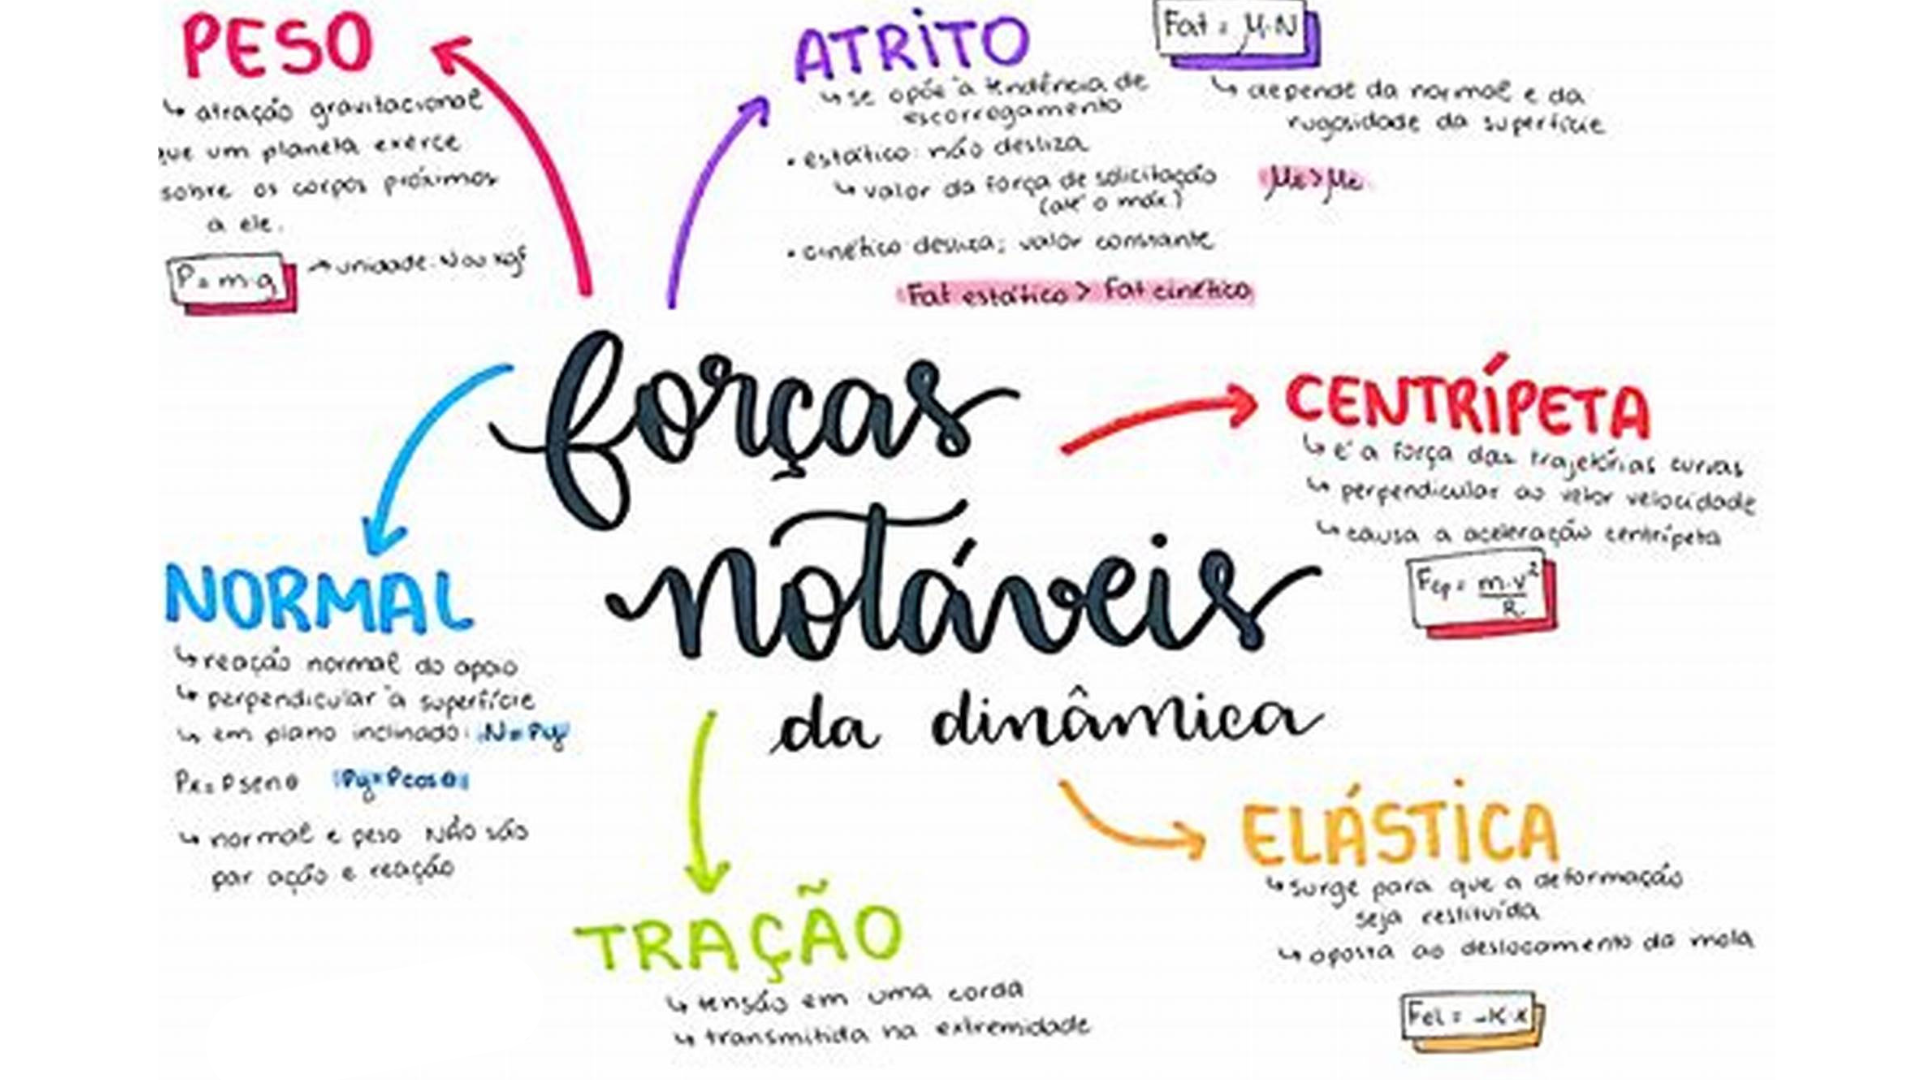 PESO
↳ atração gravitacional
que um planeta exerce
sobre os corpos próximos
a ele.
P = m·g
→ unidade: N ou kgf
ATRITO
↳ se opõe à tendência de
escorregamento
• estático: não desliza
↳ valor da força de solicitação
(até o máx.)
• cinético desliza; valor constante
Fat estático > Fat cinético
Fat = μ·N
↳ depende da normal e da
rugosidade da superfície
μe > μc
forças
notáveis
da dinâmica
CENTRÍPETA
↳ é a força das trajetórias curvas
↳ perpendicular ao vetor velocidade
↳ causa a aceleração centrípeta
Fcp = m·v²
R
NORMAL
↳ reação normal do apoio
↳ perpendicular à superfície
↳ em plano inclinado: N = Py
Px = P senθ Py = P cosθ
↳ normal e peso NÃO são
par ação e reação
TRAÇÃO
↳ tensão em uma corda
↳ transmitida na extremidade
ELÁSTICA
↳ surge para que a deformação
seja restituída
↳ oposta ao deslocamento da mola
Fel = -K·x